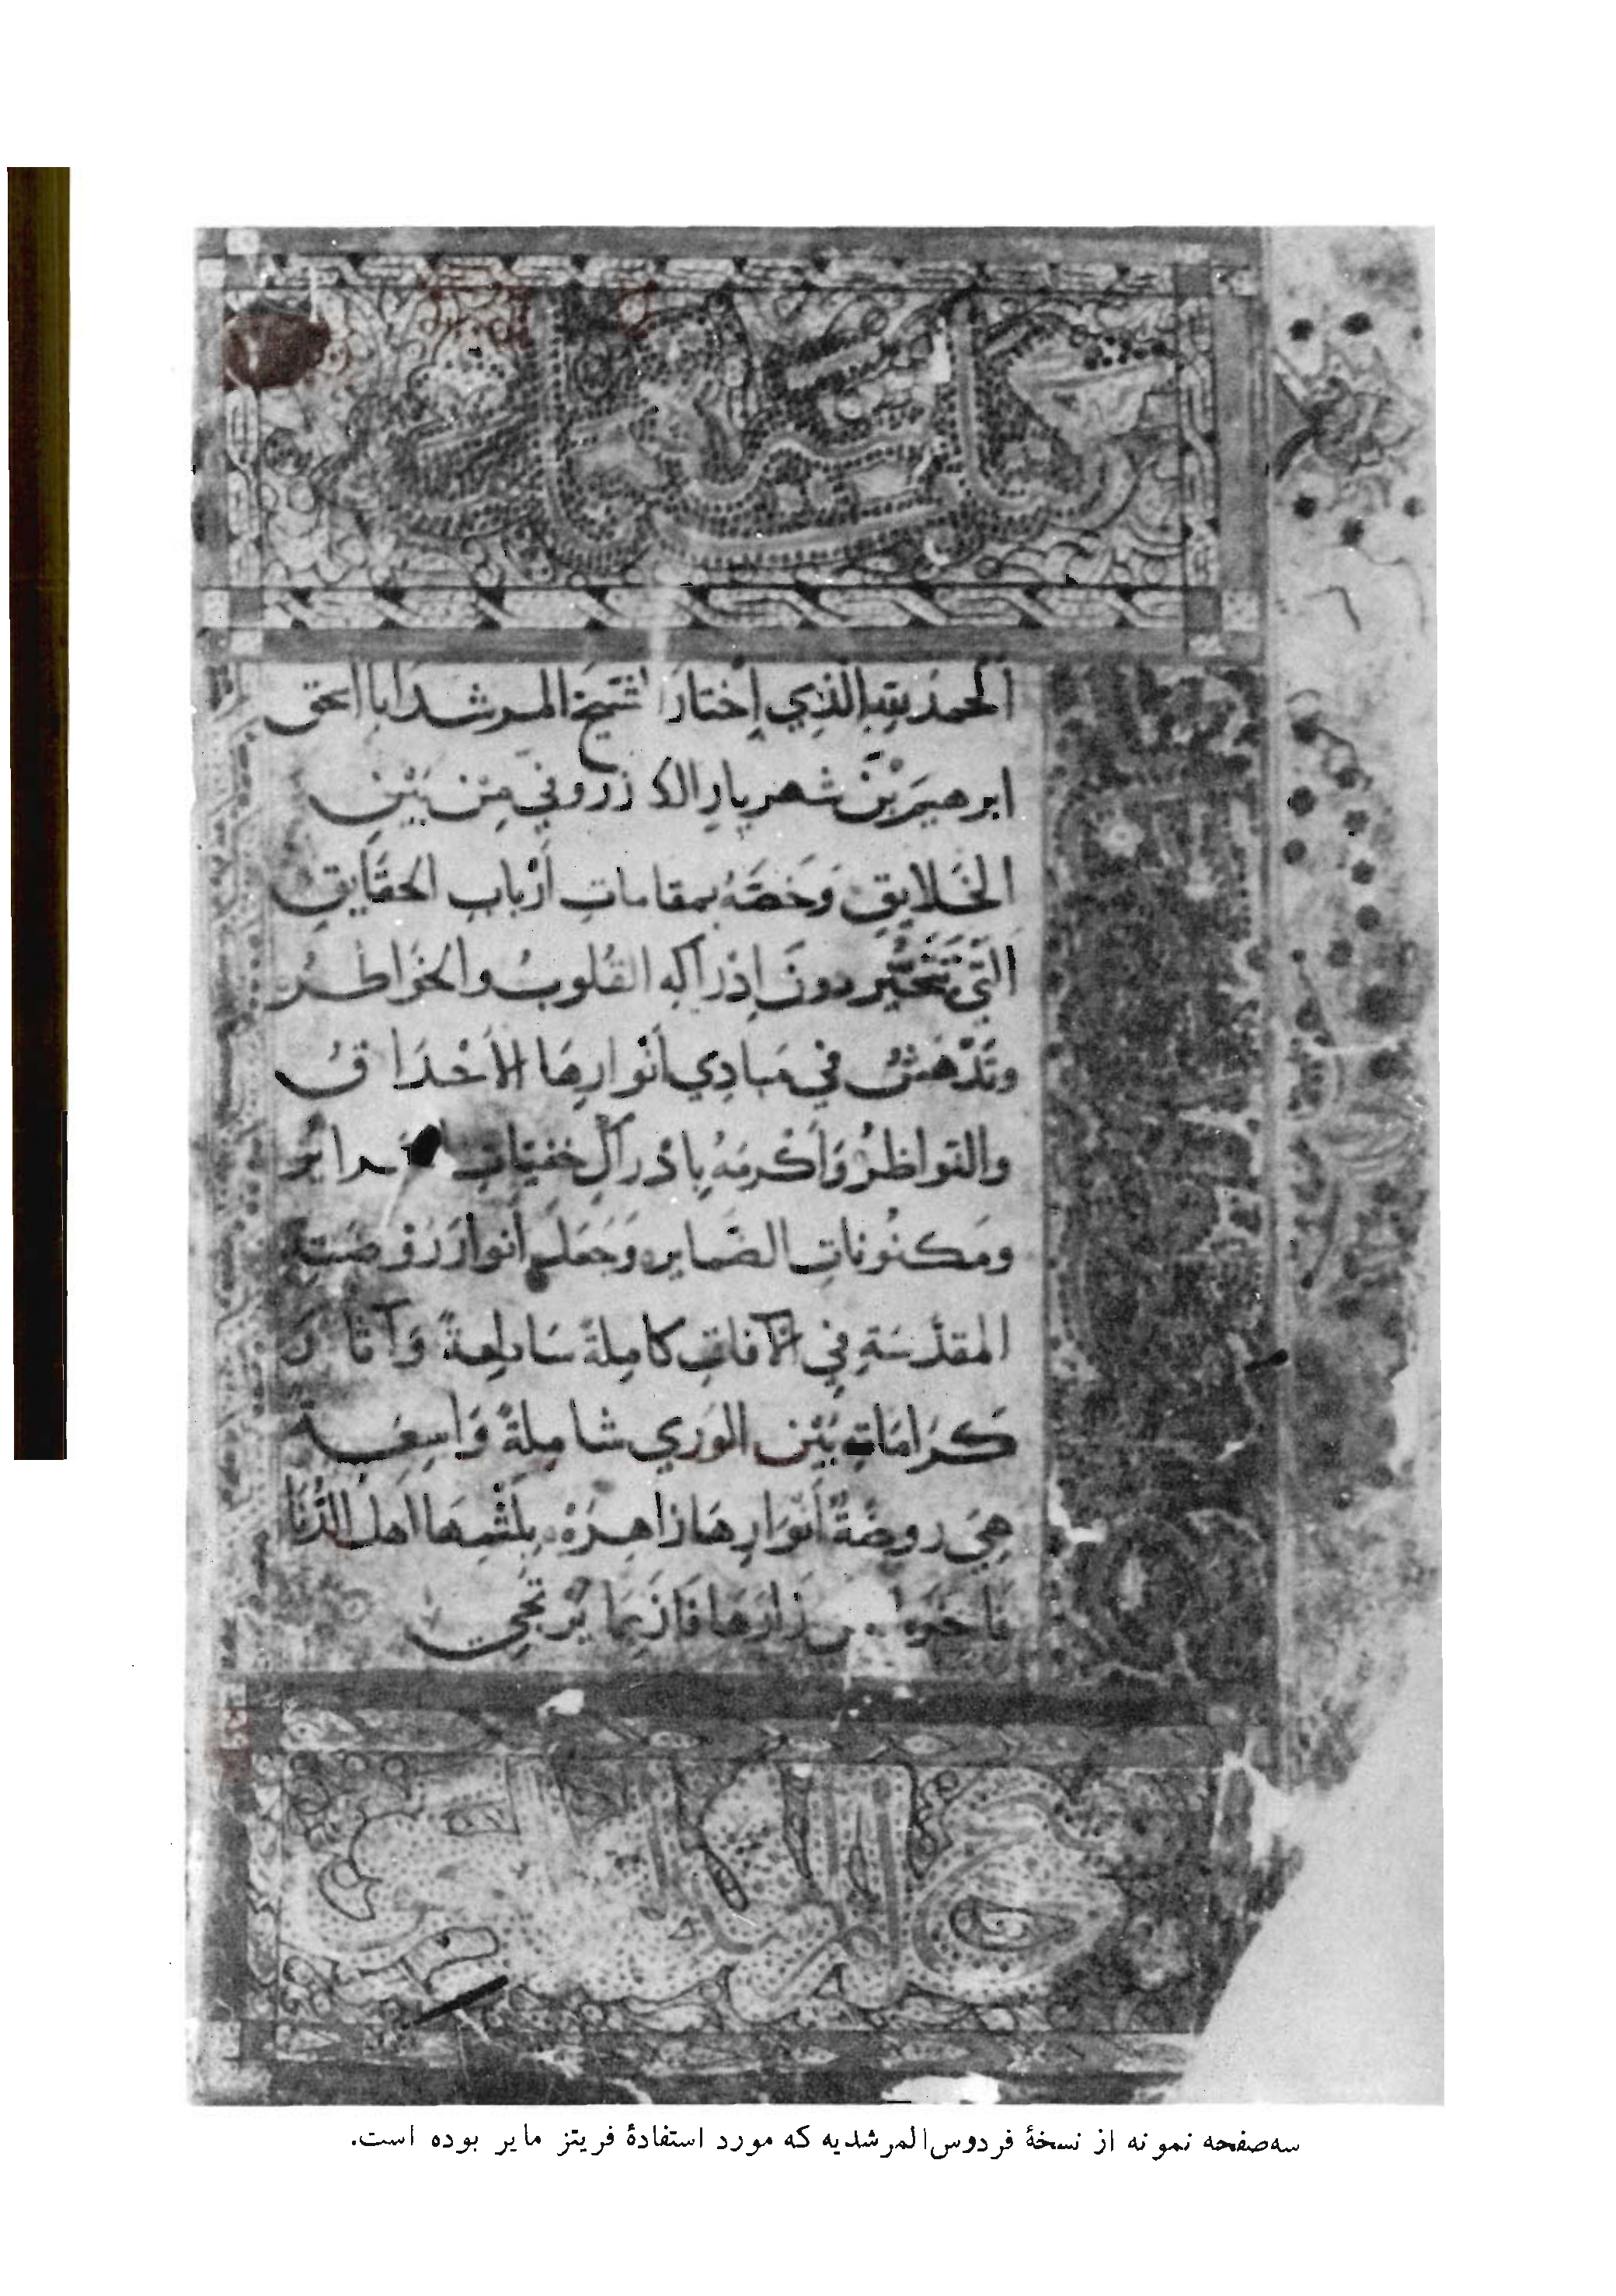 اَلحمدُ للهِ الَّذِي اِخْتارَ الشَّيخَ المرشدَ ابا اسحق
ابرهيمَ بْنَ شهريارِ الكازرونيَّ مِن بَيْنِ
الخَلايِقِ وَخَصَّهُ بمقاماتِ أرْبابِ الحقَايِقِ
الَّتِي تَتَحَيَّرُ دونَ اِدْراكِهِ القُلوبُ والخَواطرُ
وتَدْهَشُ في مَبادِي أنْوارِهَا الأحْدَاقُ
والنواظرُ وَأكْرمَهُ بِادْراكِ خفيّاتِ السرائرِ
ومَكنُوناتِ الضمايرِ وَجَعَلَ أنوارَ رَوْضَتِهِ
المقدَّسَةِ فِي الآفاقِ كامِلةً سَاطِعةً وَآثارَ
كَرَامَاتِهِ بَيْنَ الوَرَي شامِلةً وَاسِعَةً
هِيَ روضةٌ أنوَارِهَا زاهِرَهْ يلثمهَا اهل الدُّنَا
زارَهَا فَازَ بِمَا يَرْتَجِي
سه‌صفحه نمونه از نسخهٔ فردوس‌المرشدیه که مورد استفادهٔ فریتز مایر بوده است.